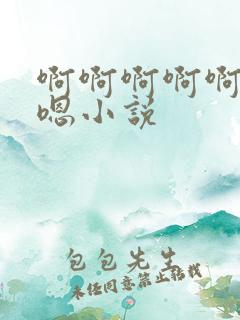 啊啊啊啊啊
嗯小说
包包先生
未经同意禁止转载